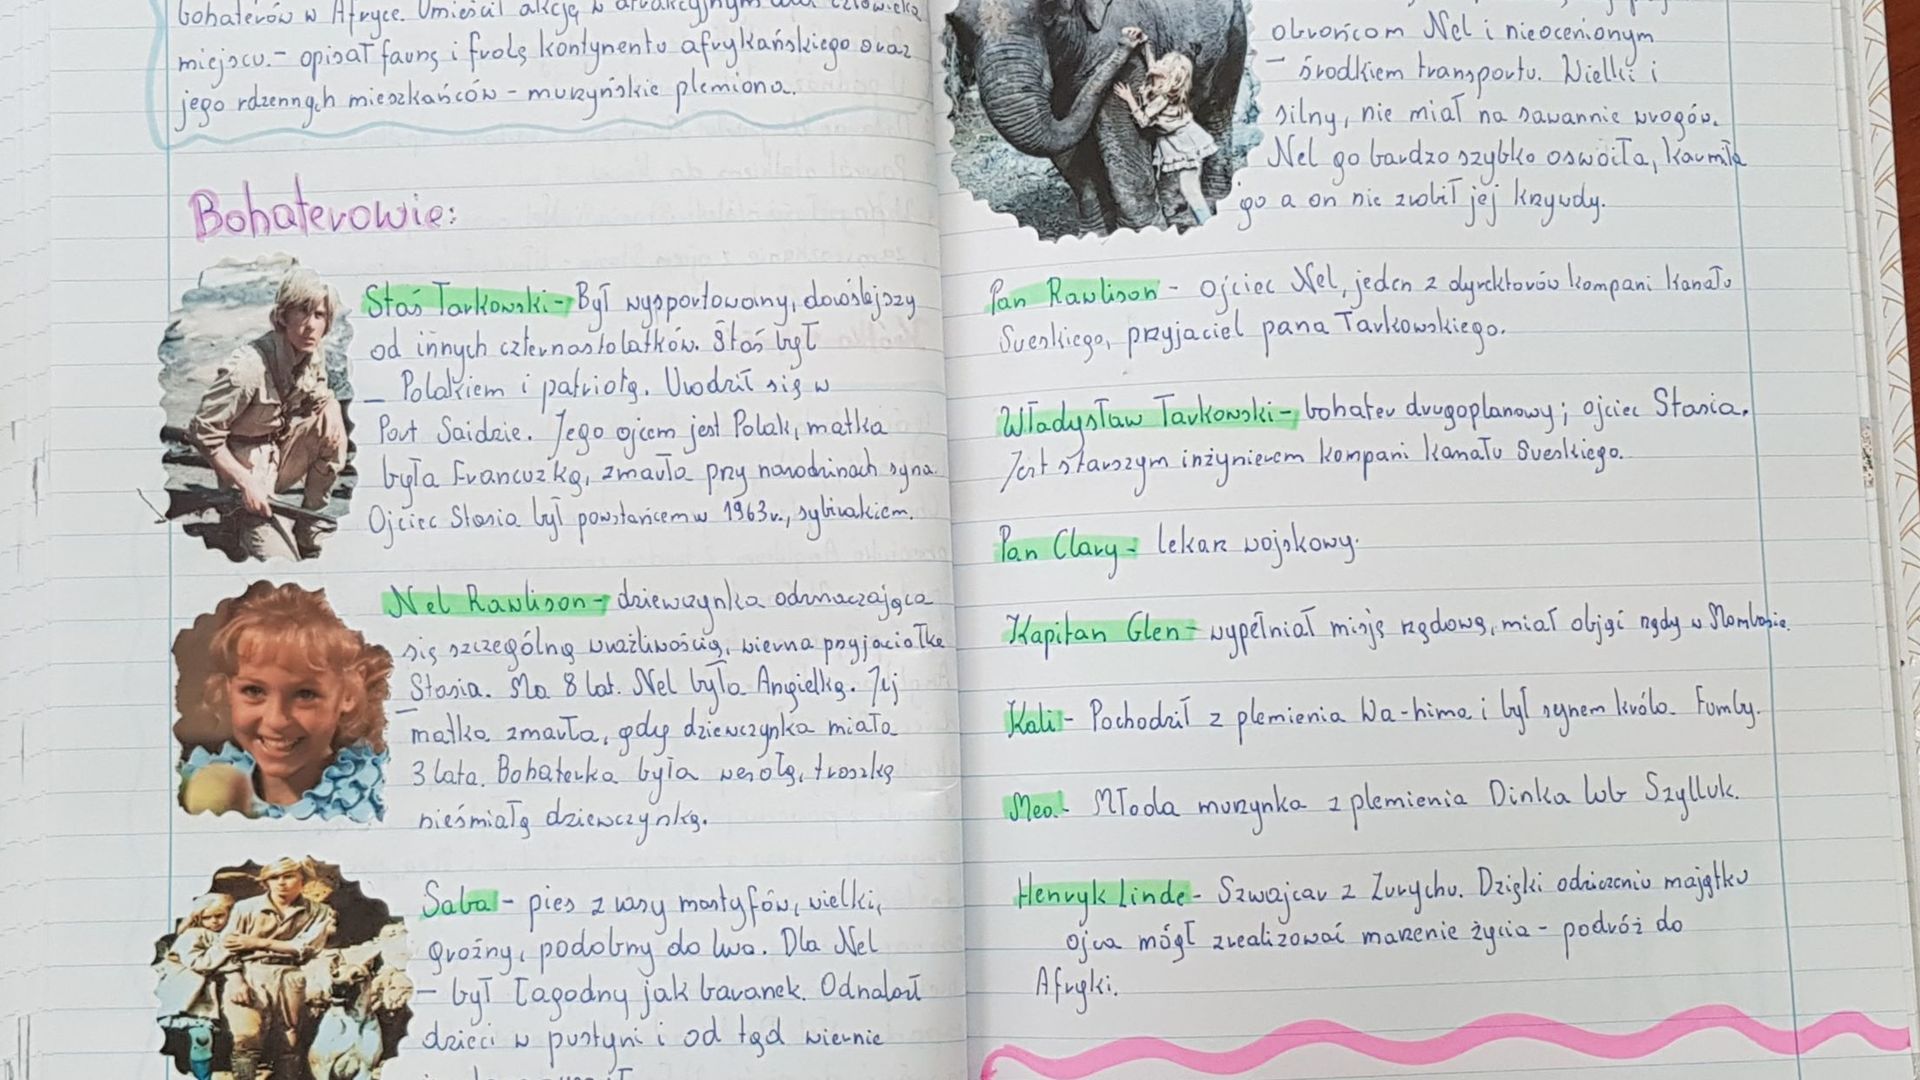 bohaterów w Afryce. Umieścił akcję w atrakcyjnym dla człowieka
miejscu. - opisał faunę i frolę kontynentu afrykańskiego oraz
jego rdzennych mieszkańców - murzyńskie plemiona.
Bohaterowie:
Staś Tarkowski - Był wysportowany, doroślejszy
od innych czternastolatków. Staś był
Polakiem i patriotą. Urodził się w
Port Saidzie. Jego ojcem jest Polak, matka
była Francuzką, zmarła przy narodzinach syna.
Ojciec Stasia był powstańcem w 1963r., sybirakiem.
Nel Rawlison - dziewczynka odznaczająca
się szczególną wrażliwością, wierna przyjaciółka
Stasia. Ma 8 lat. Nel była Angielką. Jej
matka zmarła, gdy dziewczynka miała
3 lata. Bohaterka była wesołą, troszkę
nieśmiałą dziewczynką.
Saba - pies z rasy mastyfów, wielki,
groźny, podobny do lwa. Dla Nel
- był łagodny jak baranek. Odnalazł
dzieci w pustyni i od tąd wiernie
obrońcom Nel i nieocenionym
- środkiem transportu. Wielki i
silny, nie miał na sawannie wrogów.
Nel go bardzo szybko oswoiła, karmiła
go a on nie zrobił jej krzywdy.
Pan Rawlison - ojciec Nel, jeden z dyrektorów kompani Kanału
Sueskiego, przyjaciel pana Tarkowskiego.
Władysław Tarkowski - bohater drugoplanowy; ojciec Stasia.
Jest starszym inżynierem kompani kanału Sueskiego.
Pan Clary - lekarz wojskowy.
Kapitan Glen - wypełniał misję rządową, miał objąć rządy w Mombasie.
Kali - Pochodził z plemienia Wa-hima i był synem króla. Fumby.
Mea - Młoda murzynka z plemienia Dinka lub Szylluk.
Henryk Linde - Szwajcar z Zurychu. Dzięki odziczeniu majątku
ojca mógł zrealizować marzenie życia - podróż do
Afryki.